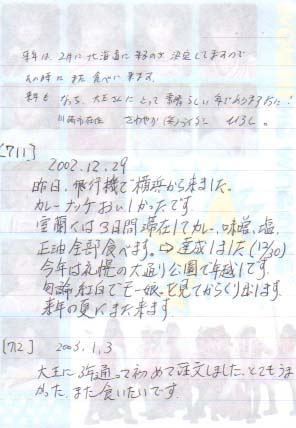 来年は、2月に北海道に来るのが決定してますので
その時にまた食べに来ます。
来年も なっち、大王さんにとって素晴らしい年でありますように!
川崎市在住 さわやか
[711]
2002.12.29
昨日、飛行機で横浜から来ました。
カレーナッチおいしかったです。
室蘭には3日間滞在してカレー、味噌、塩、
正油全部食べます。⇒達成しました(12/30)
今年は札幌の大通り公園で年越しです。
勿論、紅白でモー娘。を見てからくり出します。
来年の夏にまた来ます。
[712] 2003.1.3
大王に3年通って初めて注文しました。とてもうま
かった。また食いたいです。